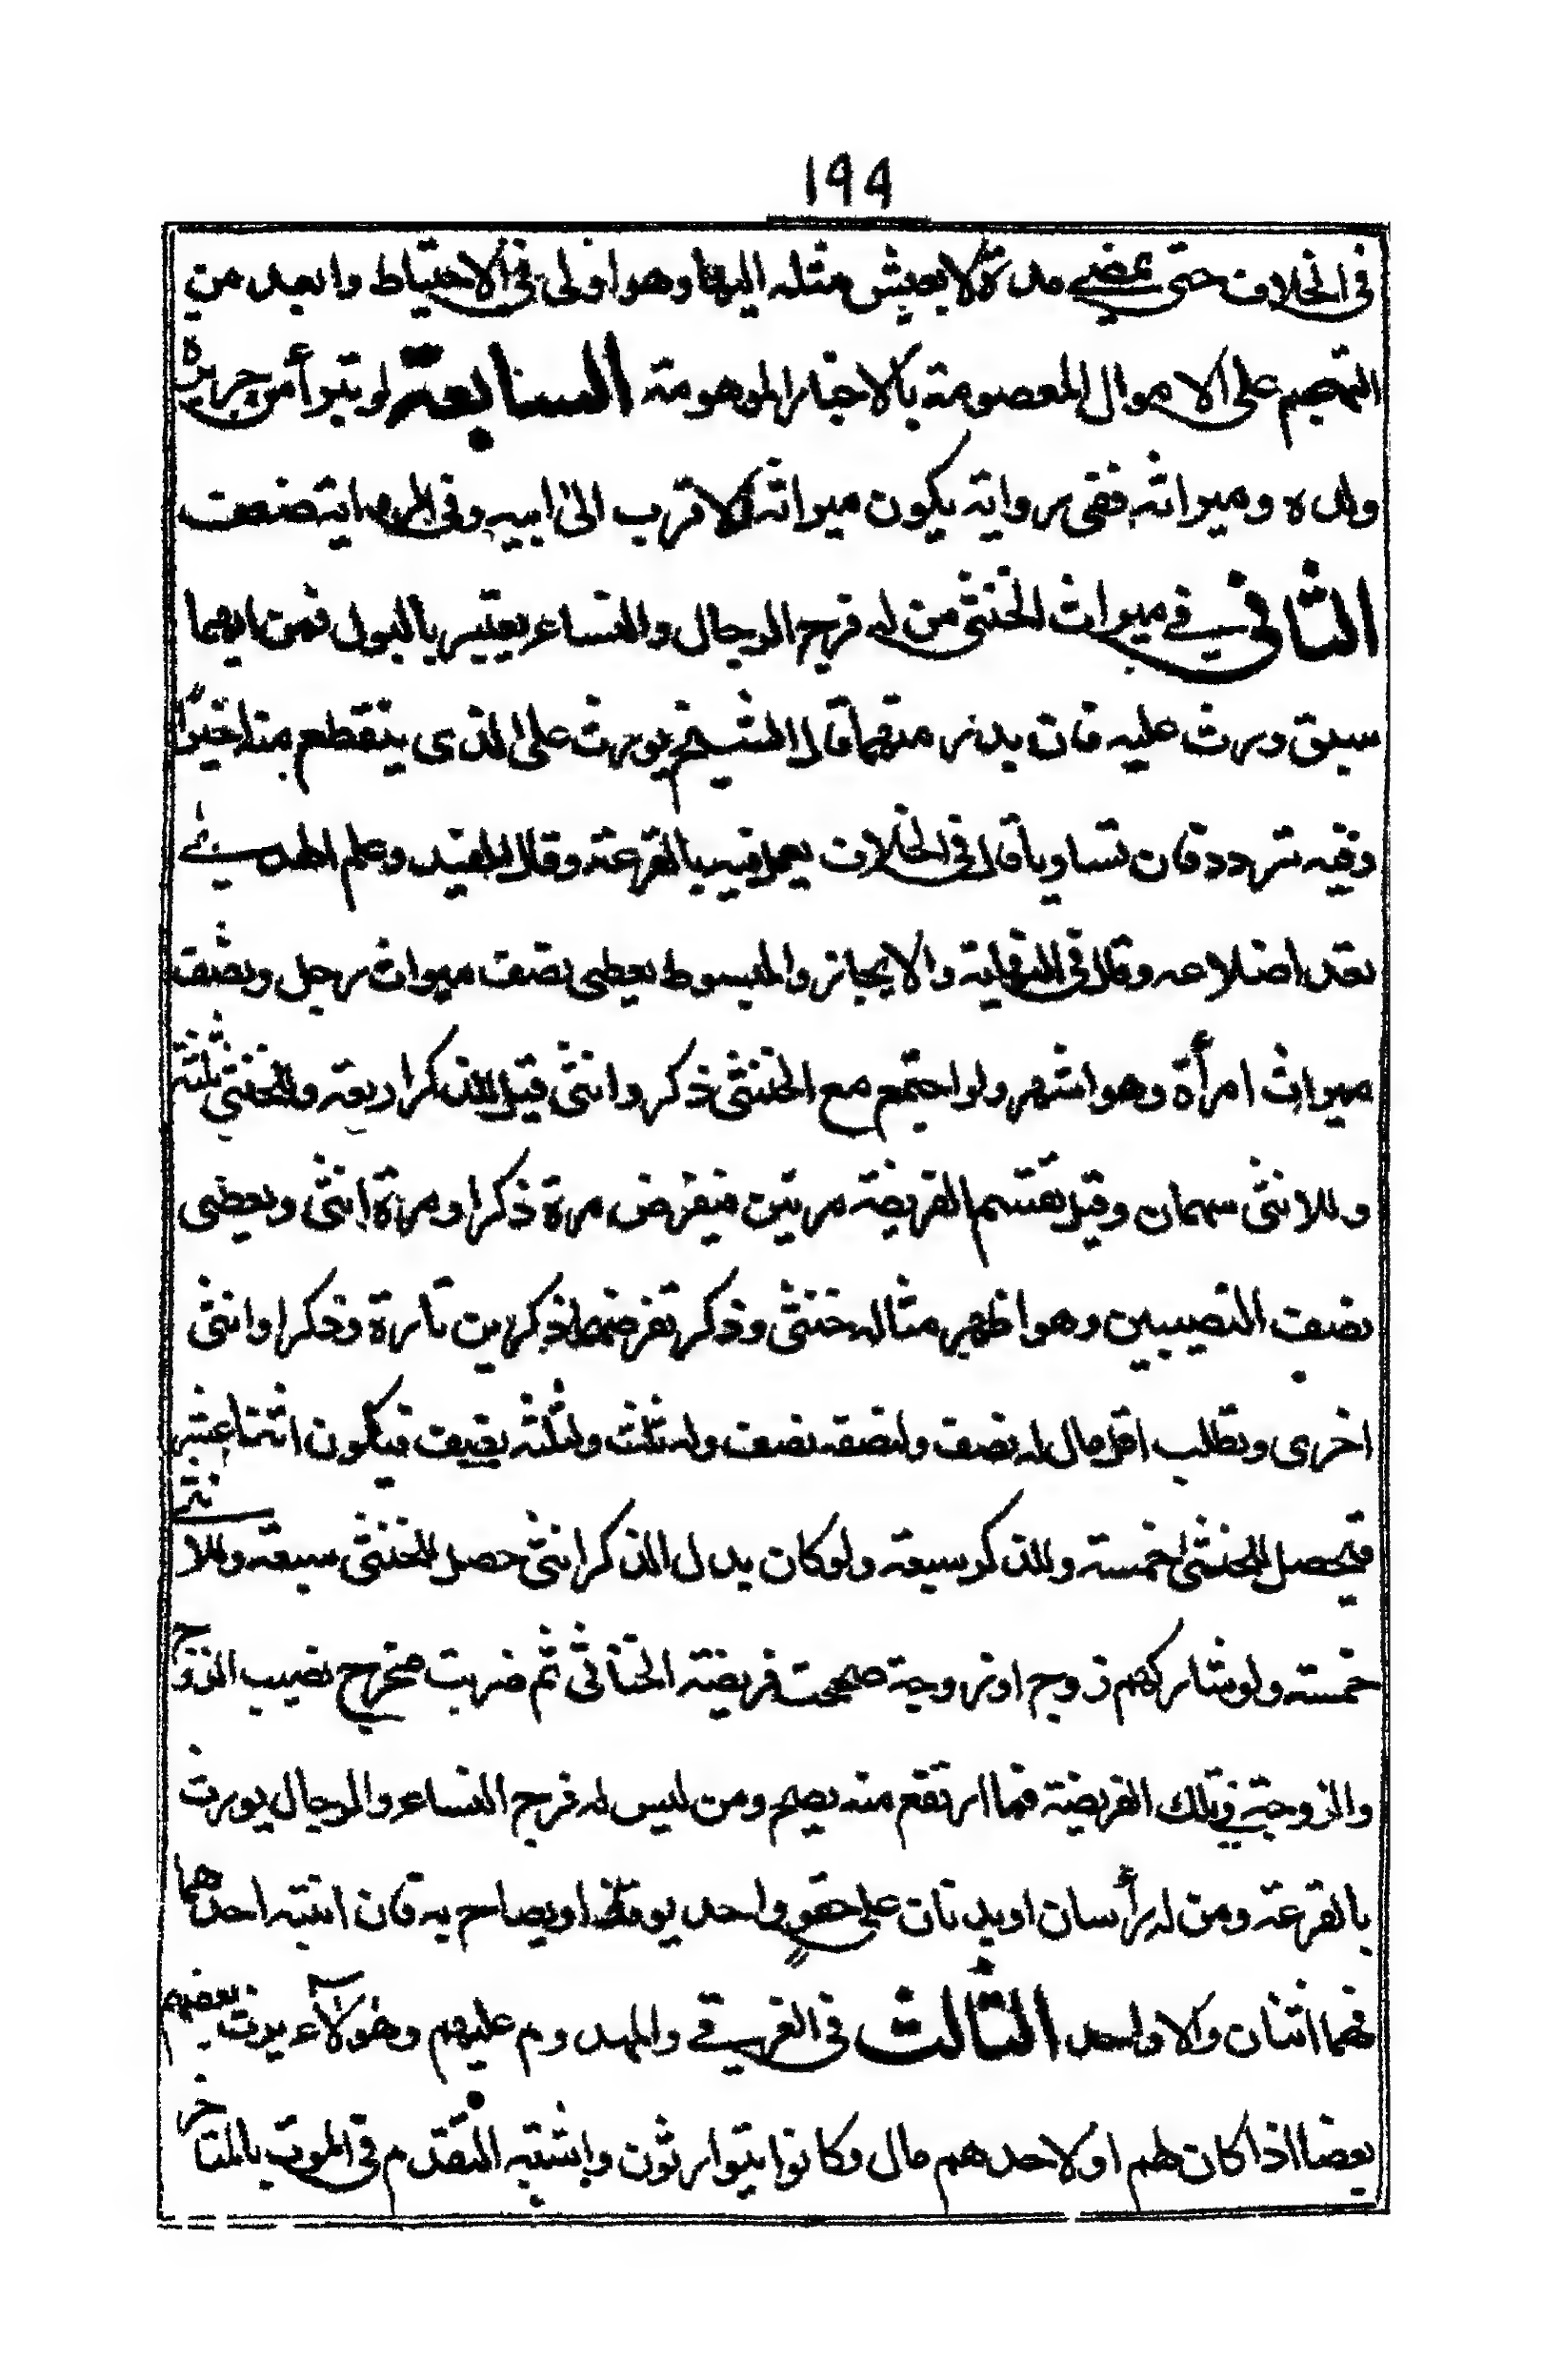 ١٩٩
فى الخلاف حتى يمضى مدة لا يعيش مثله اليها وهو اولى فى الاحتياط وابعد من
التهجم على الاموال المعصومة بالاخبار الموهومة السابعة لو تبرأ من جريرة
ولده وميراثه ففى رواية يكون ميراثه للاقرب الى ابيه وفى الرواية ضعف
الثانى فى ميراث الخنثى من له فرج الرجال والنساء يعتبر بالبول فمن ايهما
سبق ورث عليه فان بدر منهما قال الشيخ يورث على الذى ينقطع منه اخيرًا
وفيه تردد فان تساويا قال فى الخلاف يعمل فيه بالقرعة وقال المفيد وعلم الهدى
تعد اضلاعه وقال فى النهاية والايجاز والمبسوط يعطى نصف ميراث رجل ونصف
ميراث امرأة وهو اشهر ولو اجتمع مع الخنثى ذكر وانثى قيل للذكر اربعة وللخنثى ثلثة
وللانثى سهمان وقيل تقسم الفريضة مرتين فيفرض مرة ذكرا ومرة انثى ويعطى
نصف النصيبين وهو اظهر مثاله خنثى وذكر تفرضهما ذكرين تارة وذكرا وانثى
اخرى وتطلب اقل مال له نصف ولنصفه نصف وله ثلث ولثلثه نصف فيكون اثنا عشر
فيحصل للخنثى خمسة وللذكر سبعة ولو كان بدل الذكر انثى حصل للخنثى سبعة وللانثى
خمسة ولو شاركهم زوج او زوجة صححت فريضة الخناثى ثم ضربت مخرج نصيب الزوج
والزوجة فى تلك الفريضة فما ارتفع منه يصح ومن ليس له فرج النساء والرجال يورث
بالقرعة ومن له رأسان او بدنان على حقو واحد يوقظ او يصاح به فان انتبه احدهما
فهما اثنان والا واحد الثالث فى الغرقى والمهدوم عليهم وهؤلاء يرث بعضهم
بعضا اذا كان لهم او لاحدهم مال وكانوا يتوارثون واشتبه المتقدم فى الموت بالمتاخر